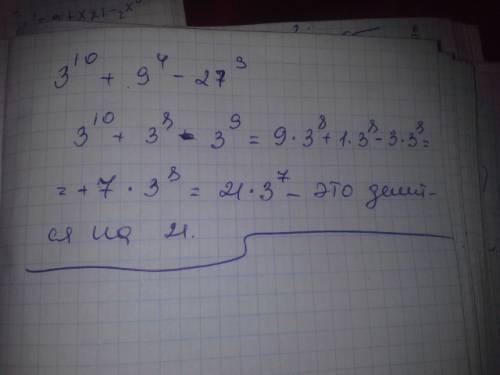 3^10 + 9^4 - 27^3
3^10 + 3^8 - 3^9 = 9·3^8 + 1·3^8 - 3·3^8 =
= +7·3^8 = 21·3^7 - это делит-
ся на 21.